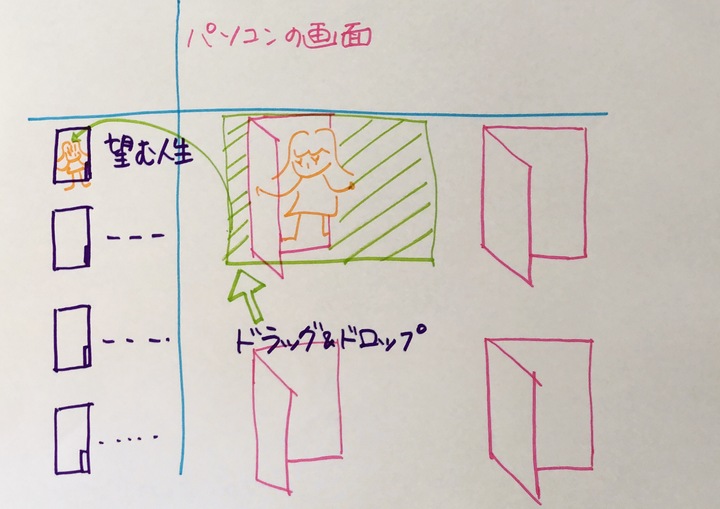 パソコンの画面
望む人生
ドラッグ&ドロップ